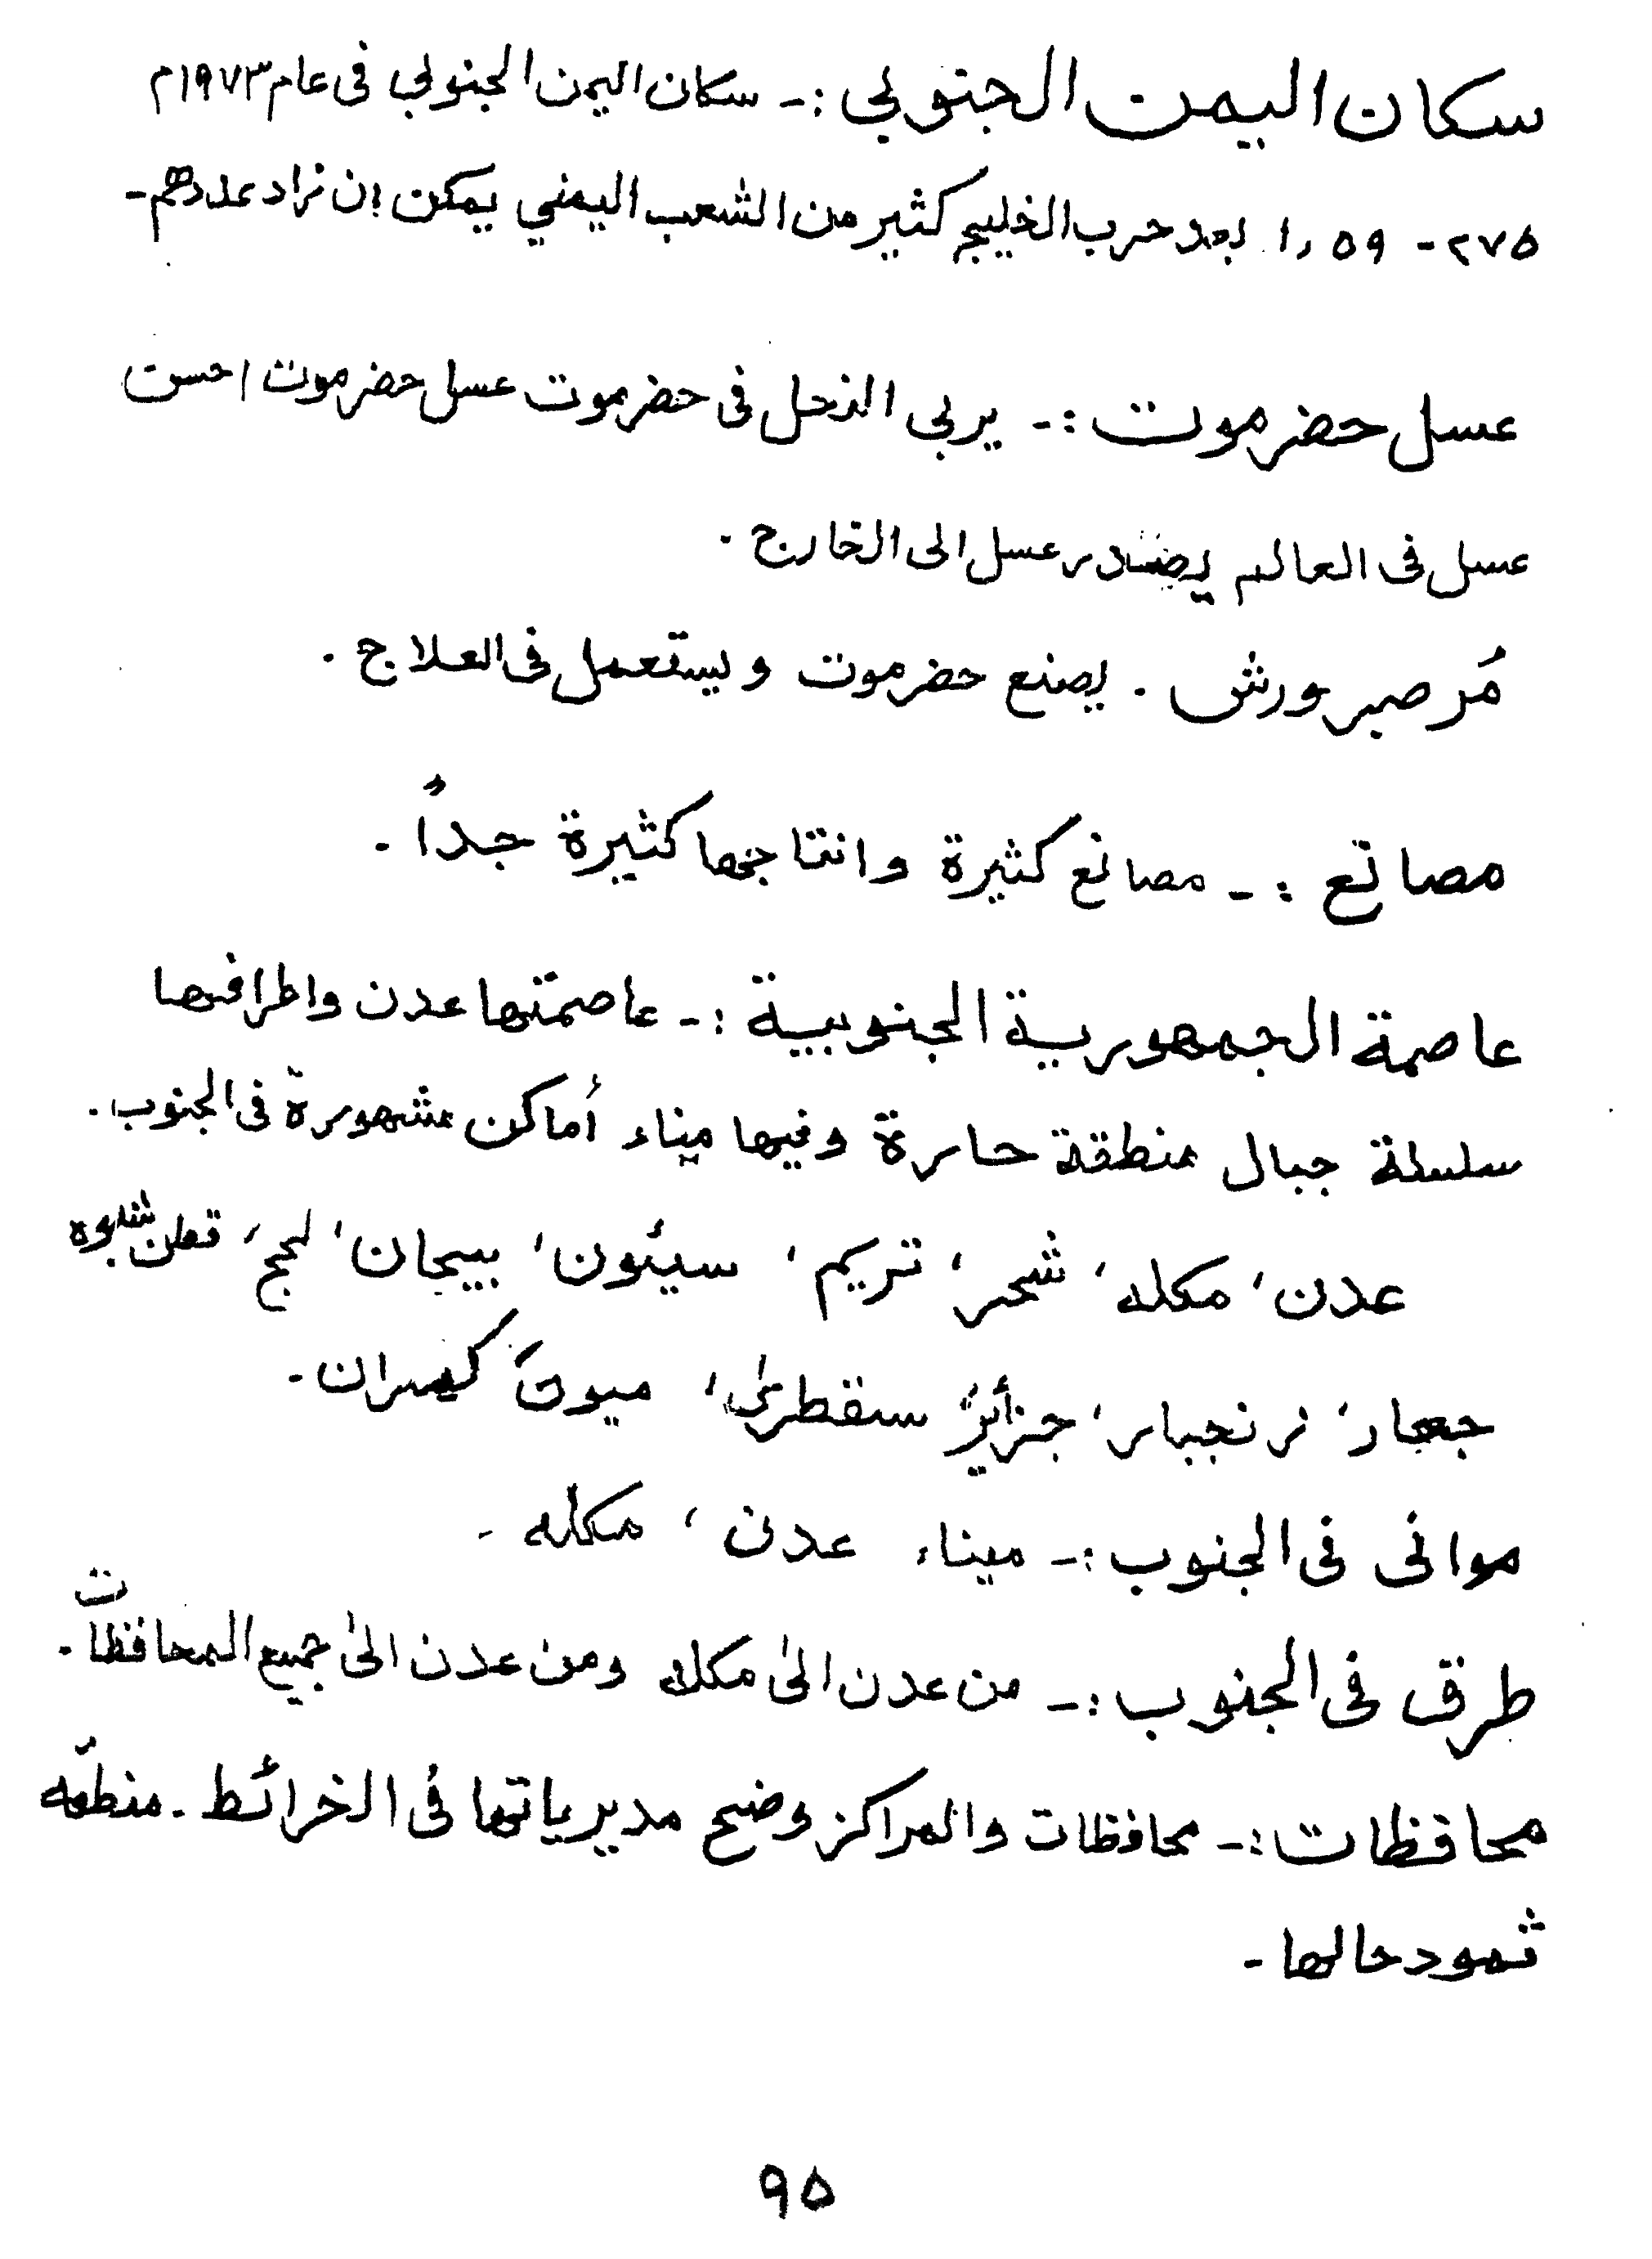 سكان اليمن الجنوبي :ـ سكان اليمن الجنوبي فى عام ١٩٧٣م
٢٧٥ - ٥٩ را بعد حرب الخليج كثير من الشعب اليمني يمكن إن زاد عددهم -
عسل حضرموت :ـ يربى النحل فى حضرموت عسل حضرموت احسن
عسل فى العالم يصدر عسل الى الخارج .
مُر صبر ورش . يصنع حضرموت ويستعمل فى العلاج .
مصانع :ـ مصانع كثيرة وانتاجها كثيرة جداً .
عاصمة الجمهورية الجنوبية :ـ عاصمتها عدن واطرافها
سلسلة جبال منطقة حارة وفيها ميناء أماكن مشهورة فى الجنوب .
عدن ، مكله ، شحر ، تريم ، سيئون ، بيحان ، لحج ، قعطن شبوه
جعار ، زنجبار ، جزائر سقطرىٰ ، ميون كمران .
موانى فى الجنوب :ـ ميناء عدن ، مكله -
طرق فى الجنوب :ـ من عدن الىٰ مكله ومن عدن الىٰ جميع المحافظات .
محافظات :ـ محافظات والمراكز وضح مديرياتها فى الخرائط - منطقه
ثمود حالها -
٩٥